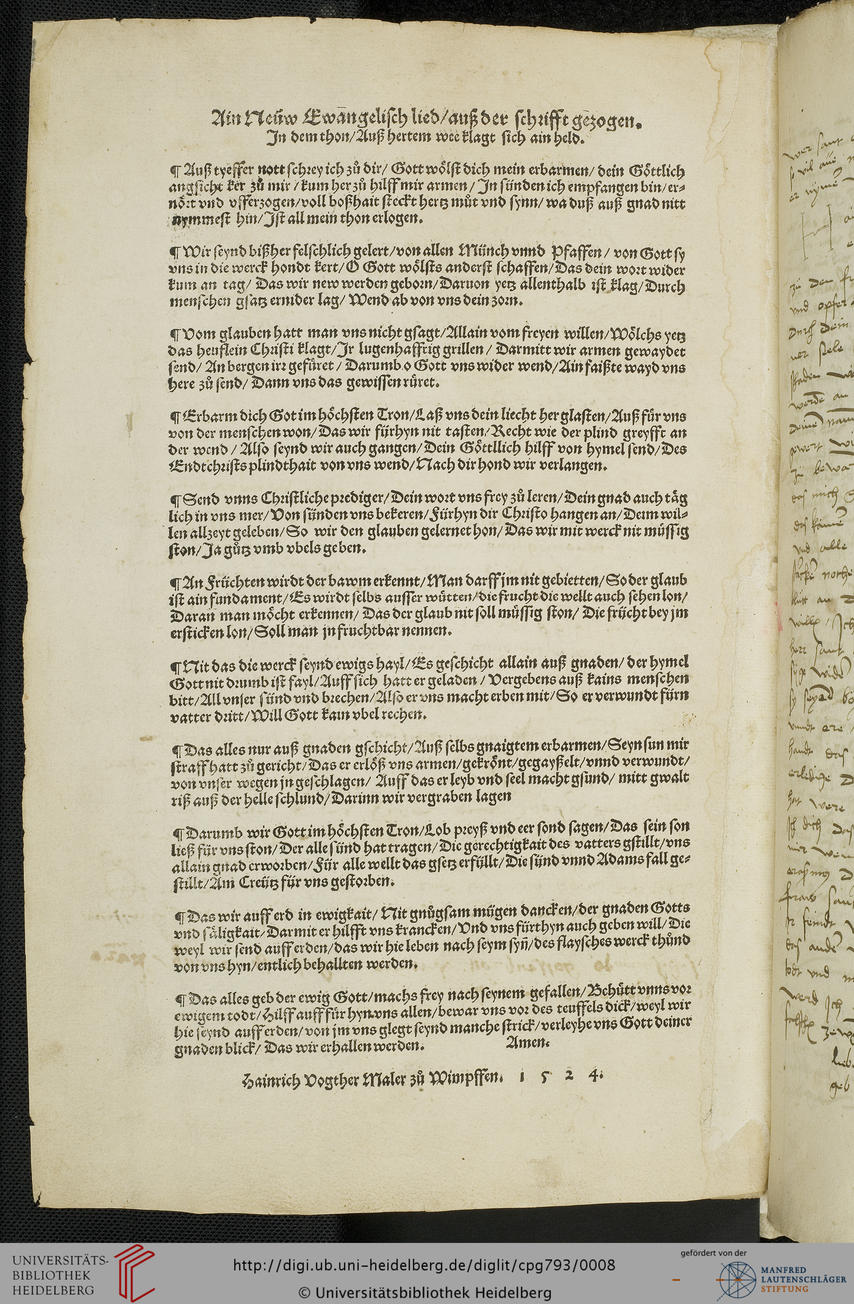 Ain Neüw Ewāngelisch lied/auß der schrifft gezogen.
In dem thon/Auß hertem wee klagt sich ain held.
¶ Auß tyeffer nott schrey ich zů dir/ Gott wölst dich mein erbarmen/ dein Göttlich
angsicht ker zů mir/kum her zů hilff mir armen/ In sünden ich empfangen bin/er-
nört vnd vfferzogen/voll boßhait steckt hertz můt vnd synn/wa duß auß gnad nitt
nymmest hin/Ist all mein thon erlogen.
¶ Wir seynd bißher felschlich gelert/von allen Münch vnnd Pfaffen/ von Gott sy
vns in die werck hondt kert/O Gott wölsts anderst schaffen/Das dein wort wider
kum an tag/ Das wir new werden geborn/Daruon yetz allenthalb ist klag/Durch
menschen gsatz ernider lag/ Wend ab von vns dein zorn.
¶ Vom glauben hatt man vns nicht gsagt/Allain vom freyen willen/Wölchs yetz
das heuflein Christi klagt/Ir lugenhafftig grillen/ Darmitt wir armen gewaydet
send/ An bergen irr gefüret/ Darumb o Gott vns wider wend/Ain faißte wayd vns
here zů send/ Dann vns das gewissen rüret.
¶ Erbarm dich Got im höchsten Tron/Laß vns dein liecht her glasten/Auß für vns
von der menschen won/Das wir fürhyn nit tasten/Recht wie der plind greyfft an
der wend/ Also seynd wir auch gangen/Dein Göttllich hilff von hymel send/Des
Endtchrists plindthait von vns wend/Nach dir hond wir verlangen.
¶ Send vnns Christliche prediger/Dein wort vns frey zů leren/Dein gnad auch täg
lich in vns mer/Von sünden vns bekeren/Fürhyn dir Christo hangen an/Deim wil-
len allzeyt geleben/So wir den glauben gelernet hon/Das wir mit werck nit müssig
ston/Ja gütz vmb vbels geben.
¶ An Früchten wirdt der bawm erkennt/Man darff im nit gebietten/So der glaub
ist ain fundament/Es wirdt selbs ausser wütten/die frucht die wellt auch sehen lon/
Daran man möcht erkennen/ Das der glaub nit soll müssig ston/ Die frücht bey im
ersticken lon/Soll man in fruchtbar nennen.
¶ Nit das die werck seynd ewigs hayl/Es geschicht allain auß gnaden/ der hymel
Gott nit drumb ist fayl/Auff sich hatt er geladen/ Vergebens auß kains menschen
bitt/All vnser sünd vnd brechen/Also er vns macht erben mit/So er verwundt fürn
vatter dritt/Will Gott kain vbel rechen.
¶ Das alles nur auß gnaden gschicht/Auß selbs gnaigtem erbarmen/Seyn sun mir
straff hatt zů gericht/Das er erlöß vns armen/gekrönt/gegayßelt/vnnd verwundt/
von vnser wegen in geschlagen/ Auff das er leyb vnd seel macht gsund/ mitt gwalt
riß auß der helle schlund/Darinn wir vergraben lagen
¶ Darumb wir Gott im höchsten Tron/Lob preyß vnd eer sond sagen/Das sein son
ließ für vns ston/Der alle sünd hat tragen/Die gerechtigkait des vatters gstillt/vns
allain gnad erworben/Für alle wellt das gsetz erfyllt/Die sünd vnnd Adams fall ge-
stillt/Am Creütz für vns gestorben.
¶ Das wir auff erd in ewigkait/Nit gnůgsam mügen dancken/der gnaden Gotts
vnd säligkait/Darmit er hilfft vns krancken/Vnd vns fürthyn auch geben will/Die
weyl wir send auff erden/das wir hie leben nach seym syn̄/des flaysches werck thünd
von vns hyn/entlich behallten werden.
¶ Das alles geb der ewig Gott/machs frey nach seynem gefallen/Behütt vnns vor
ewigem todt/Hilff auff für hyn vns allen/bewar vns vor des teuffels dick/weyl wir
hie seynd auff erden/von im vns glegt seynd manche strick/verleyhe vns Gott deiner
gnaden blick/ Das wir erhallen werden. Amen.
Hainrich Vogther Maler zů Wimpffen. 1 5 2 4.
UNIVERSITÄTS-
BIBLIOTHEK
HEIDELBERG
http://digi.ub.uni-heidelberg.de/diglit/cpg793/0008
© Universitätsbibliothek Heidelberg
gefördert von der
MANFRED
LAUTENSCHLÄGER
STIFTUNG